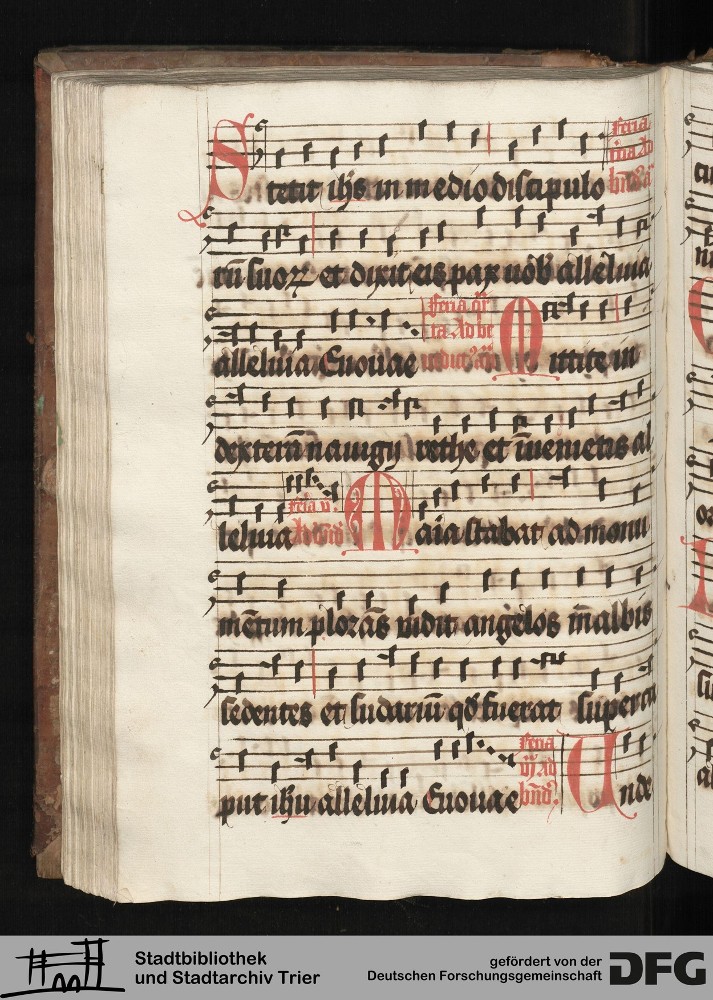 Stetit ihs in medio discipulo feria
iiia Ad
rū suorꝝ et dixit eis pax vob alleluia
alleluia Euouae feria qr
ta Ad be
Mittite in
dexterā nauigij rethe et īuenietis al
leluia feria v. Maria stabat ad monu
mētum plorās vidit angelos ī albis
sedentes et sudariū qd fuerat super ca
put ihu alleluia Euouae feria
vj ad
bnd. Unde
Stadtbibliothek
und Stadtarchiv Trier
gefördert von der
Deutschen Forschungsgemeinschaft
DFG